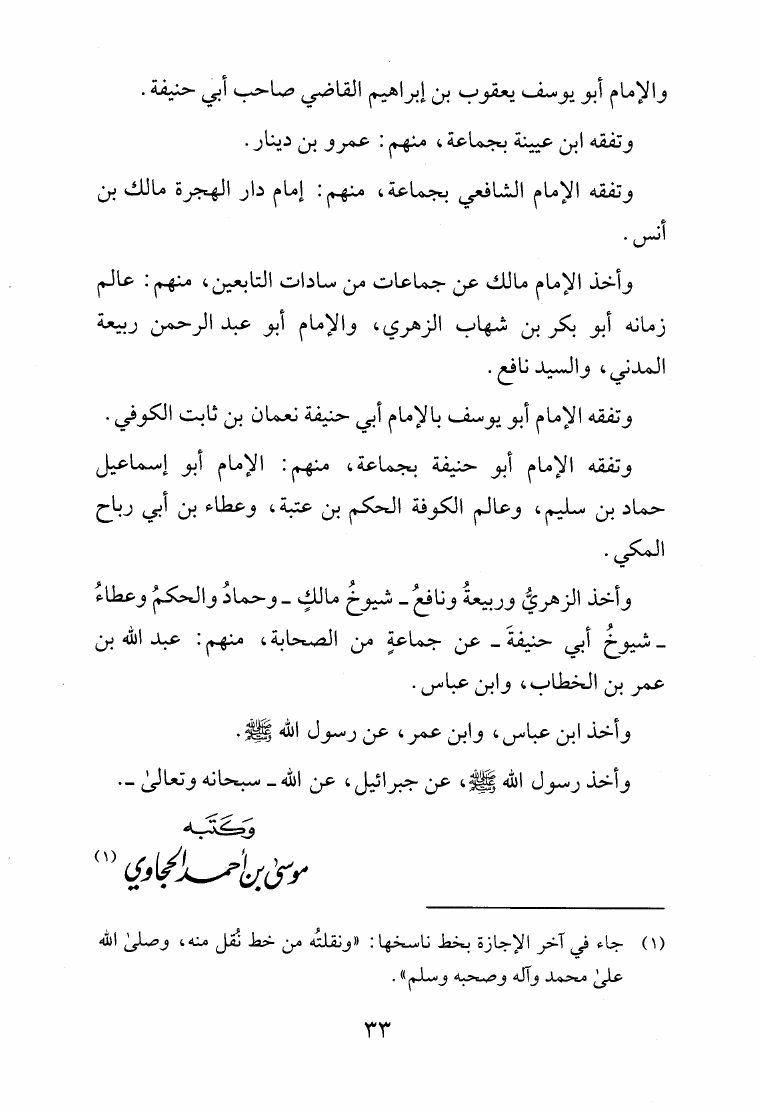 والإمام أبو يوسف يعقوب بن إبراهيم القاضي صاحب أبي حنيفة.
وتفقه ابن عيينة بجماعة، منهم: عمرو بن دينار.
وتفقه الإمام الشافعي بجماعة، منهم: إمام دار الهجرة مالك بن
أنس.
وأخذ الإمام مالك عن جماعات من سادات التابعين، منهم: عالم
زمانه أبو بكر بن شهاب الزهري، والإمام أبو عبد الرحمن ربيعة
المدني، والسيد نافع.
وتفقه الإمام أبو يوسف بالإمام أبي حنيفة نعمان بن ثابت الكوفي.
وتفقه الإمام أبو حنيفة بجماعة، منهم: الإمام أبو إسماعيل
حماد بن سليم، وعالم الكوفة الحكم بن عتبة، وعطاء بن أبي رباح
المكي.
وأخذ الزهريُّ وربيعةُ ونافعُ ـ شيوخُ مالكٍ ـ وحمادُ والحكمُ وعطاءُ
ـ شيوخُ أبي حنيفةَ ـ عن جماعةٍ من الصحابة، منهم: عبد الله بن
عمر بن الخطاب، وابن عباس.
وأخذ ابن عباس، وابن عمر، عن رسول الله ﷺ.
وأخذ رسول الله ﷺ، عن جبرائيل، عن الله ـ سبحانه وتعالىٰ ـ.
وَكَتَبَه
موسىٰ بن أحمد الحجاوي (١)
(١) جاء في آخر الإجازة بخط ناسخها: «ونقلتُه من خط نُقل منه، وصلىٰ الله
علىٰ محمد وآله وصحبه وسلم».
٣٣